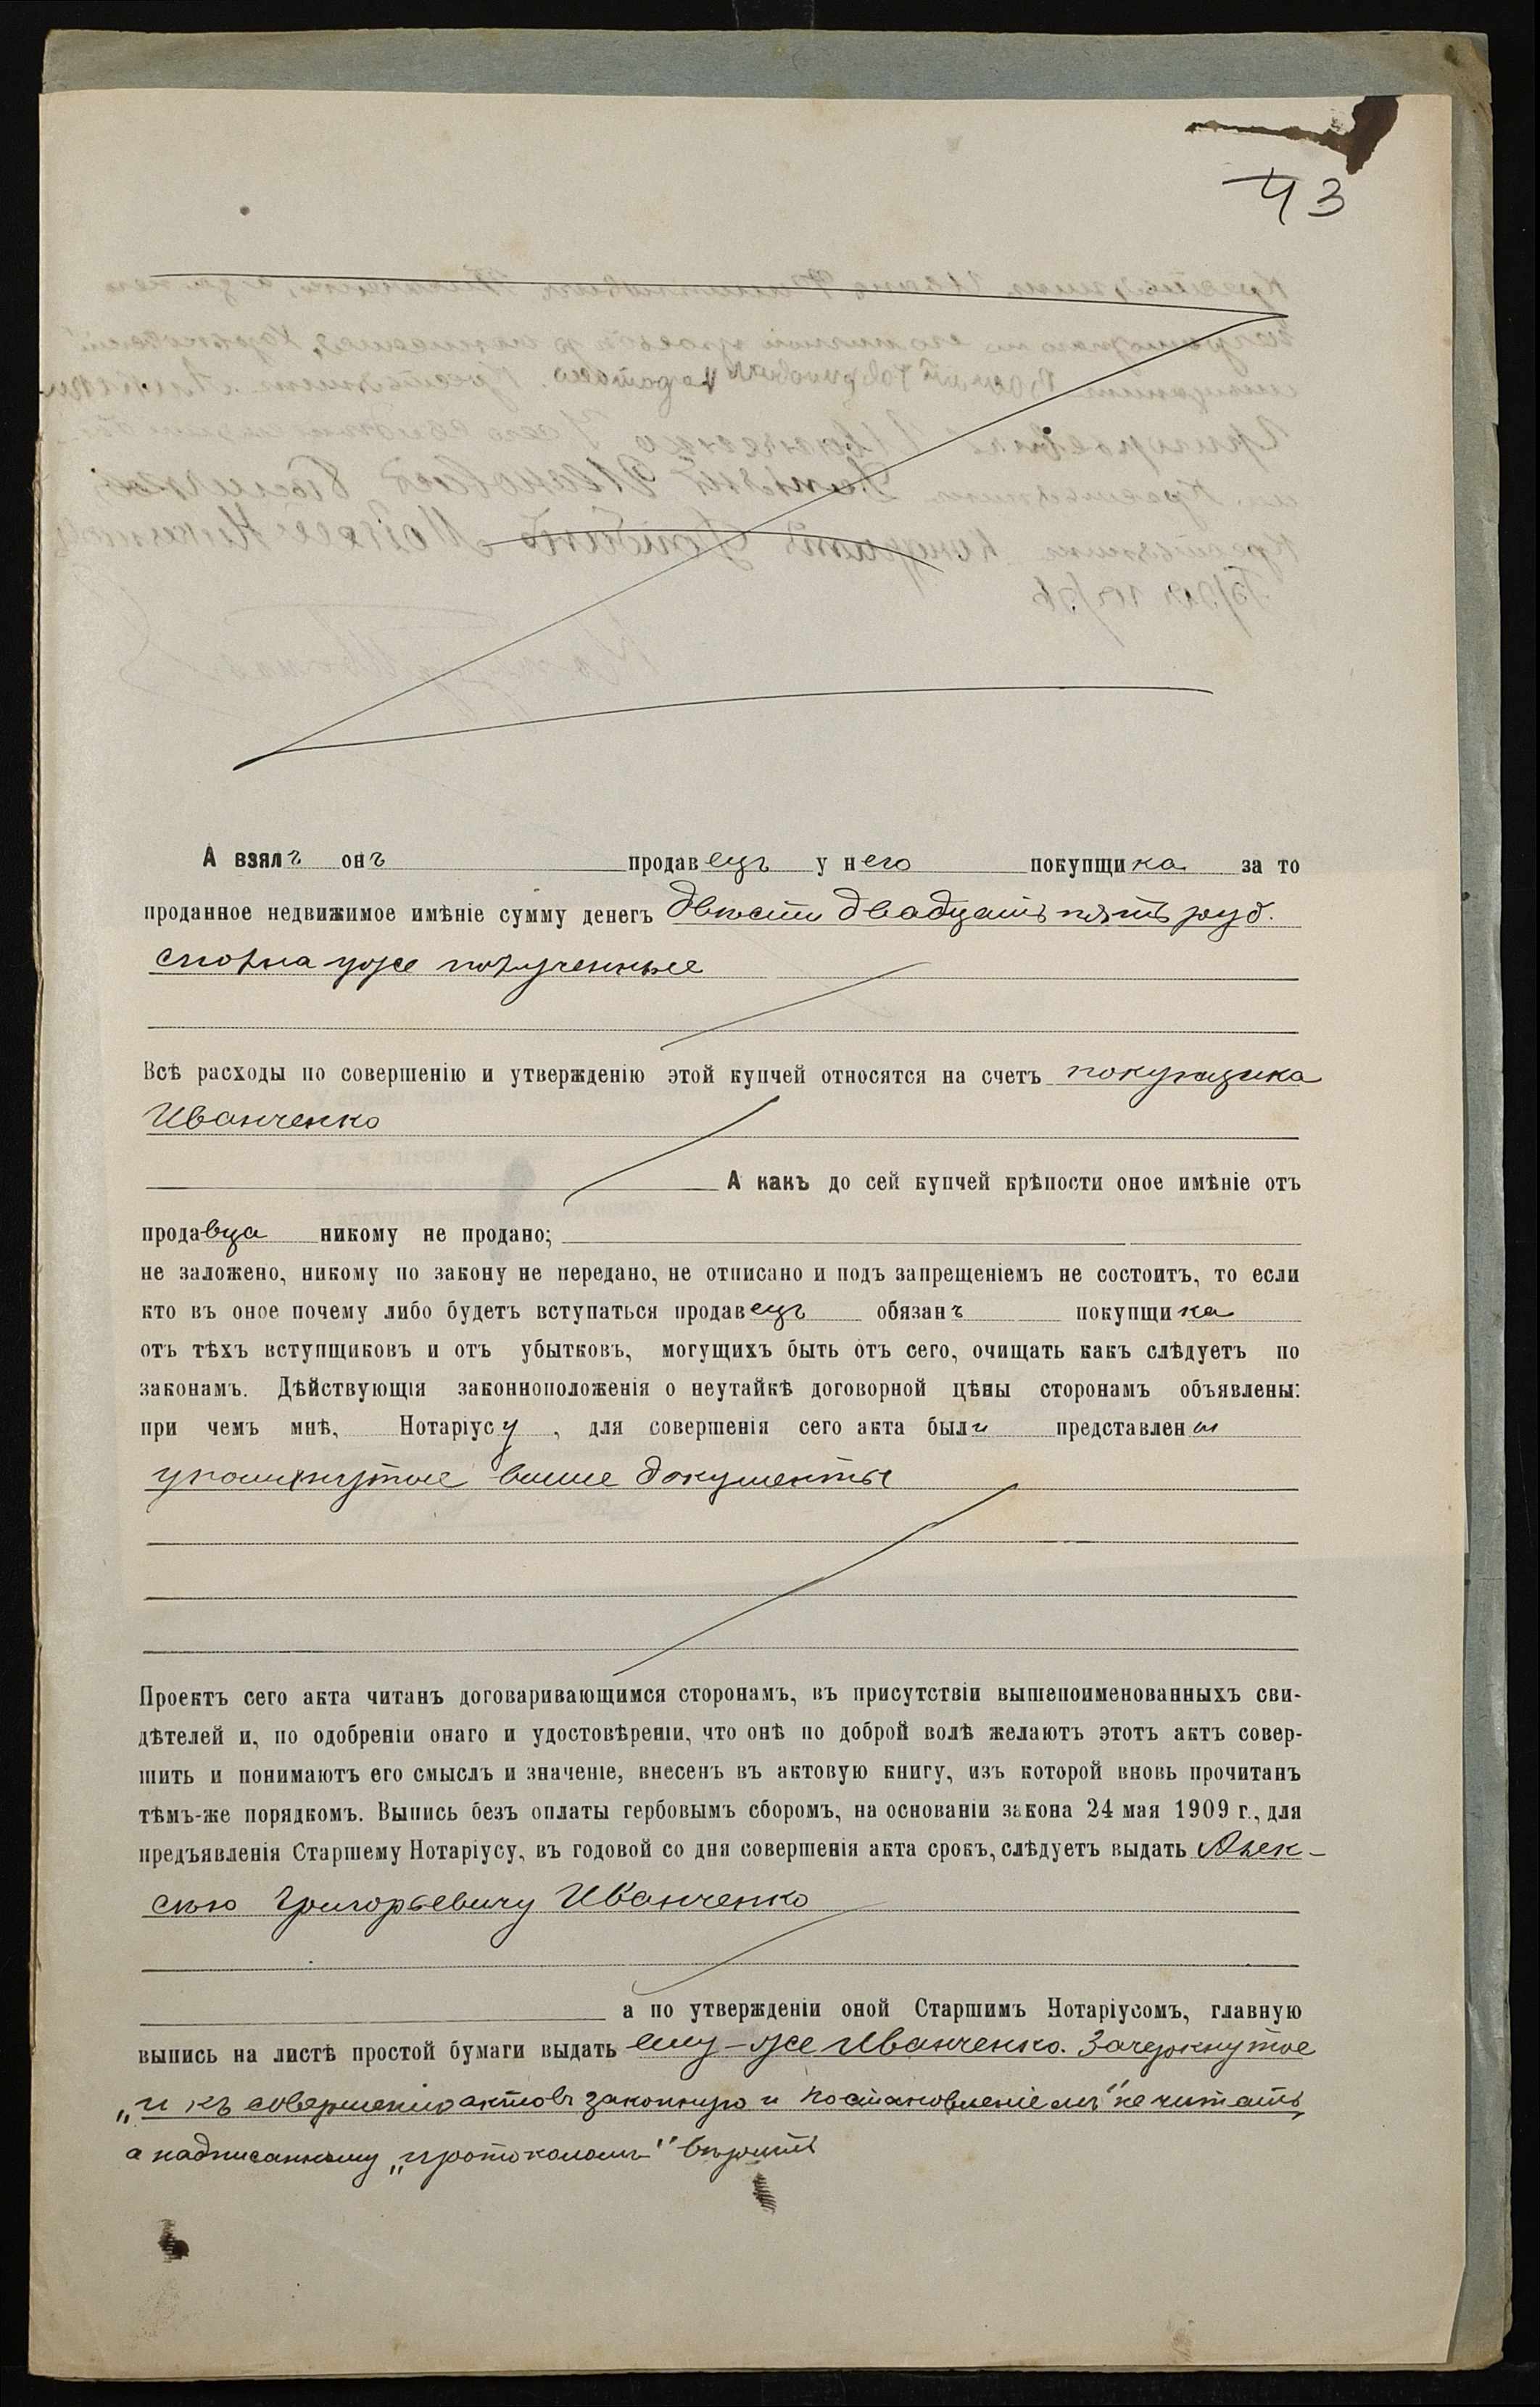 43
А взялъ онъ продавецъ у него покупщика за то
проданное недвижимое имѣніе сумму денегъ двѣсти двадцать пять руб.
сполна уже полученные
Всѣ расходы по совершенію и утвержденію этой купчей относятся на счетъ покупщика
Иванченко
А какъ до сей купчей крѣпости оное имѣніе отъ
продавца никому не продано;
не заложено, никому по закону не передано, не отписано и подъ запрещеніемъ не состоитъ, то если
кто въ оное почему либо будетъ вступаться продавецъ обязанъ покупщика
отъ тѣхъ вступщиковъ и отъ убытковъ, могущихъ быть отъ сего, очищать какъ слѣдуетъ по
законамъ. Дѣйствующія законноположенія о неутайкѣ договорной цѣны сторонамъ объявлены:
при чемъ мнѣ, Нотаріусу, для совершенія сего акта были представлены
упомянутые выше документы
Проектъ сего акта читанъ договаривающимся сторонамъ, въ присутствіи вышепоименованныхъ сви-
дѣтелей и, по одобреніи онаго и удостовѣреніи, что онѣ по доброй волѣ желаютъ этотъ актъ совер-
шить и понимаютъ его смыслъ и значеніе, внесенъ въ актовую книгу, изъ которой вновь прочитанъ
тѣмъ-же порядкомъ. Выпись безъ оплаты гербовымъ сборомъ, на основаніи закона 24 мая 1909 г., для
предъявленія Старшему Нотаріусу, въ годовой со дня совершенія акта срокъ, слѣдуетъ выдать Алек-
сѣю Григорьевичу Иванченко
а по утвержденіи оной Старшимъ Нотаріусомъ, главную
выпись на листѣ простой бумаги выдать ему-же Иванченко. Зачеркнутое
„и къ совершенію актовъ законную и постановленіемъ" не читать,
а надписанному „протоколомъ" вѣрить